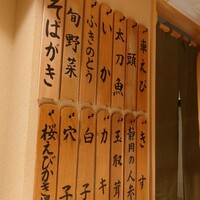 車えび
頭
太刀魚
いか
ふきのとう
旬野菜
そばがき
きす
静岡の人参
玉取茸
カキ
白子
穴子
桜えびかき